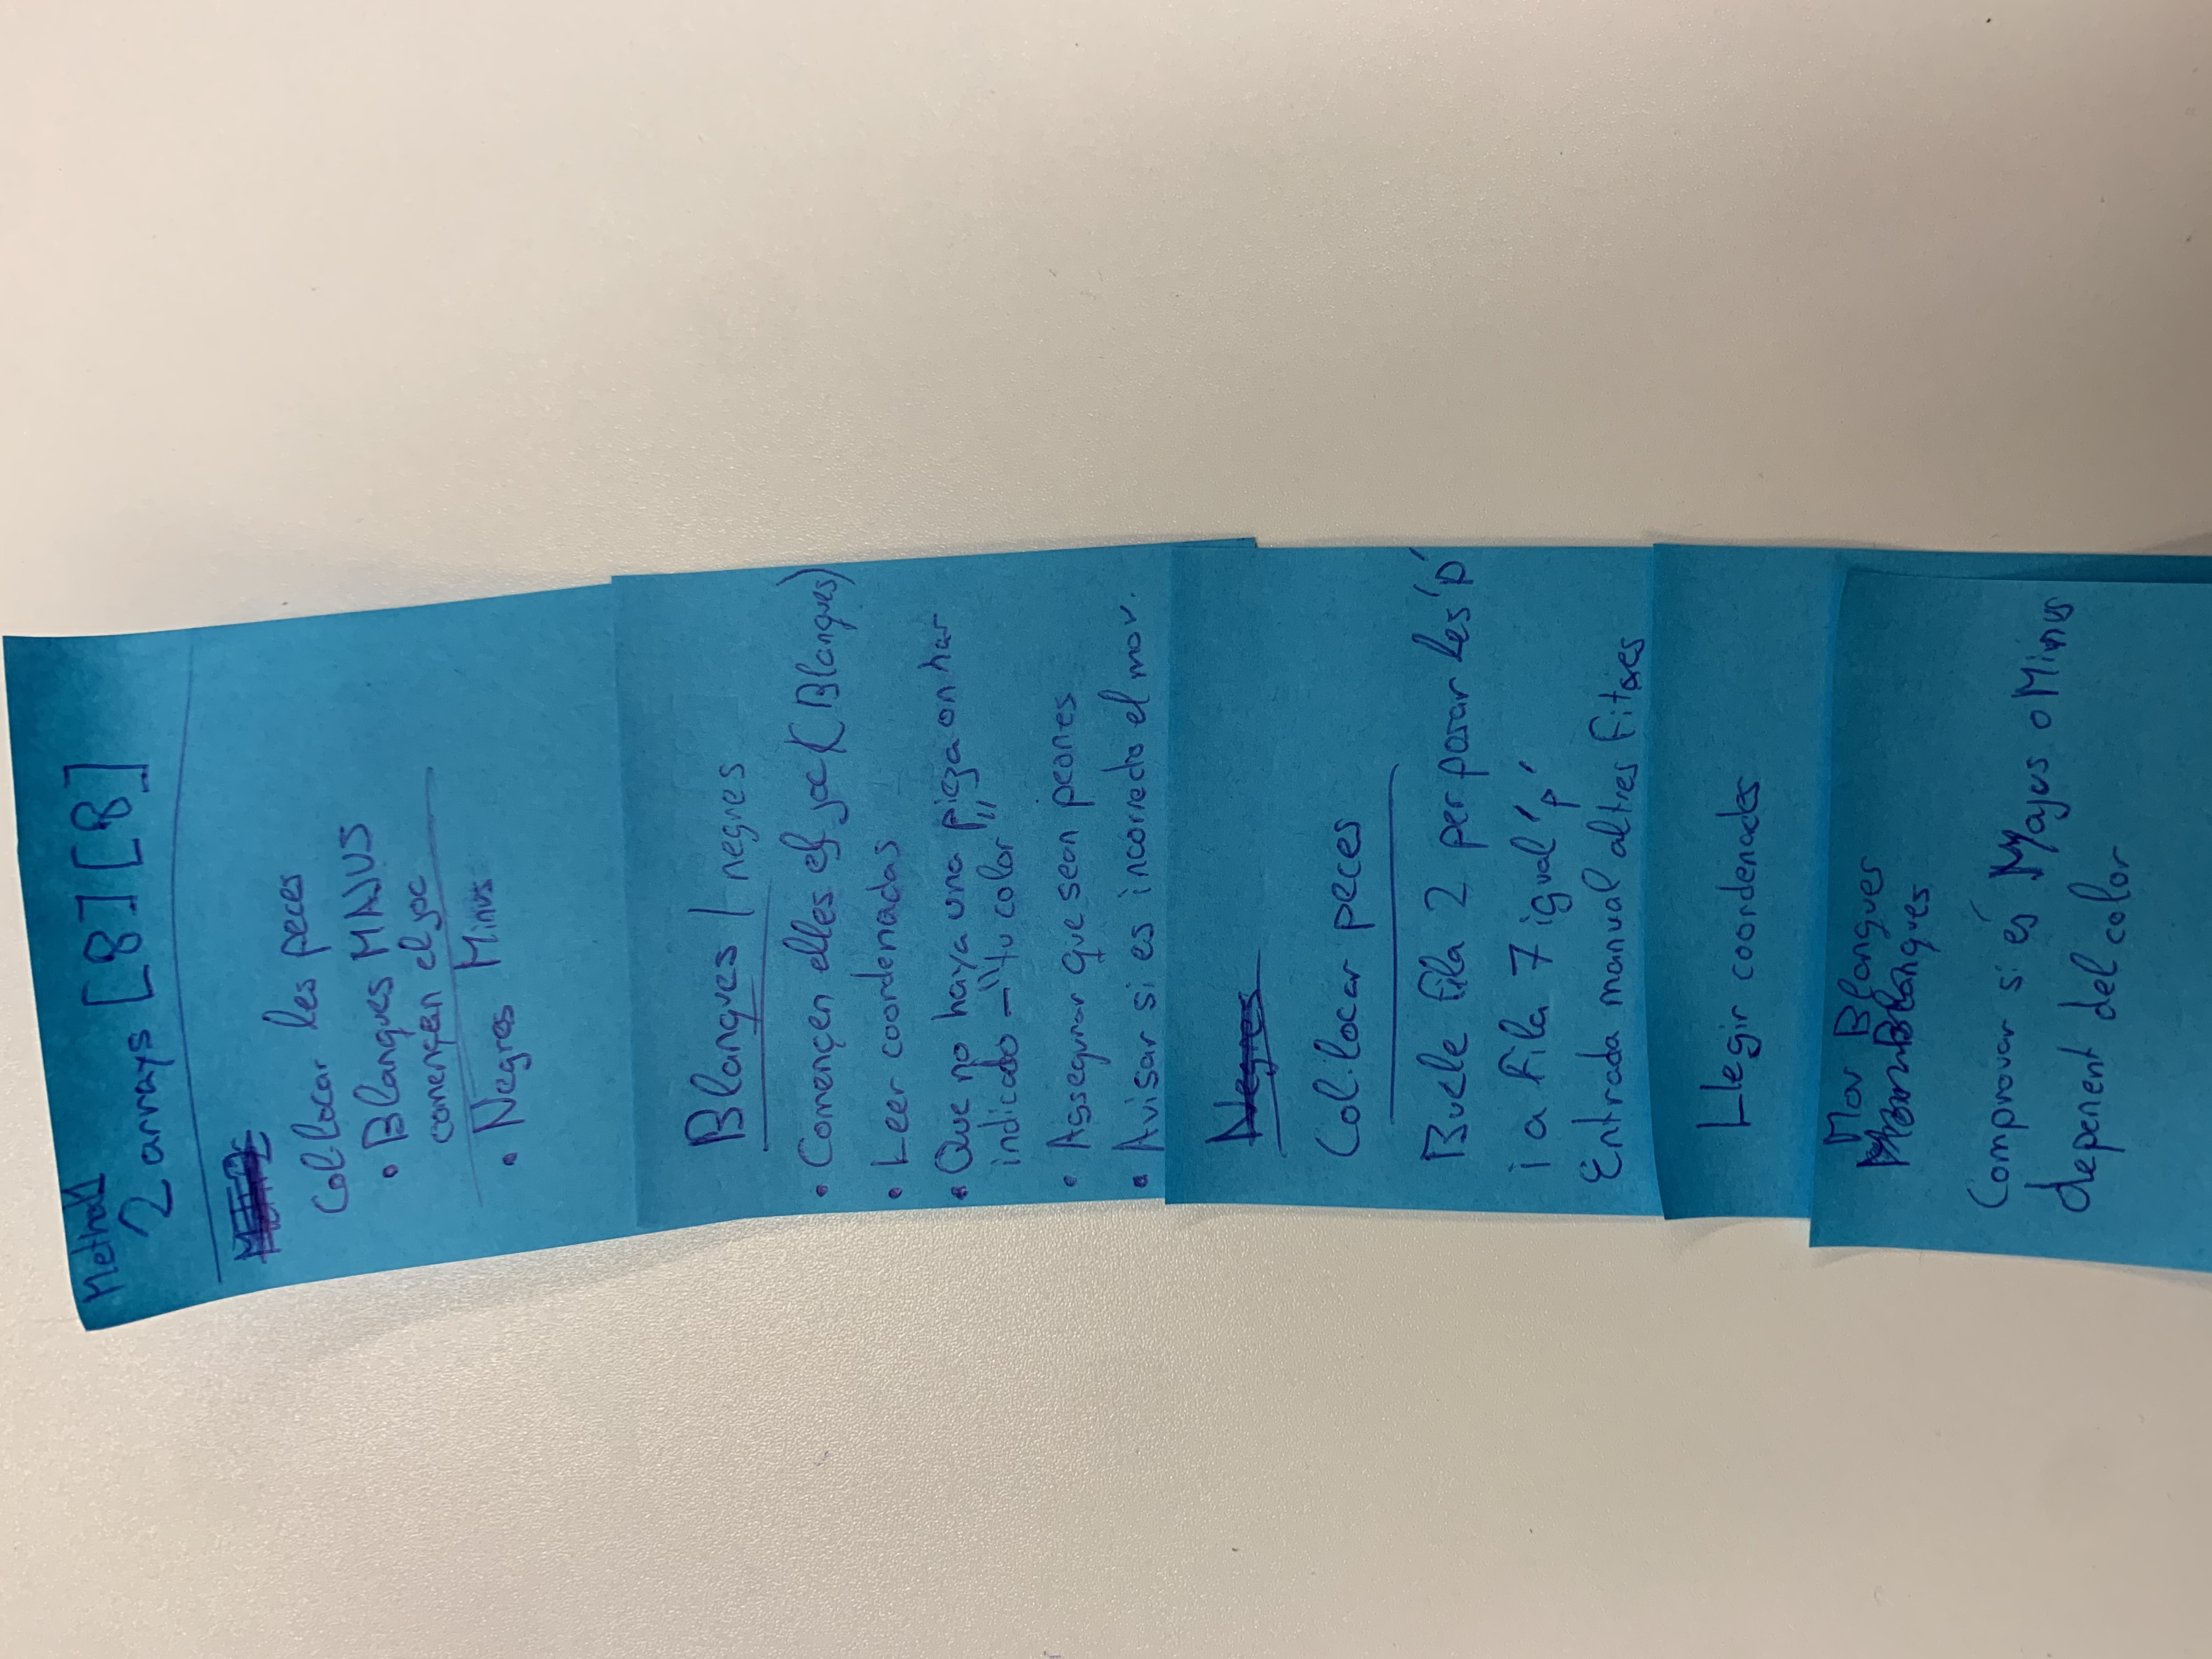 Method1
2 arrays [8] [8]
Col·locar les peces
• Blanques MAJUS
començen el joc
• Negres Minus
Blanques / negres
• Començen elles el joc (Blanques)
• Leer coordenadas
• Que no haya una pieza on han
indicado - "tu color"
• Assegurar que sean peones
• Avisar si es incorrecto el mov.
Negres
Col·locar peces
Bucle fila 2 per posar les 'p'
i a fila 7 igual 'p'
Entrada manual altres fitxes
Llegir coordenades
Mov Blanques
Blanques
Comprovar si és Majus o Minus
depenent del color